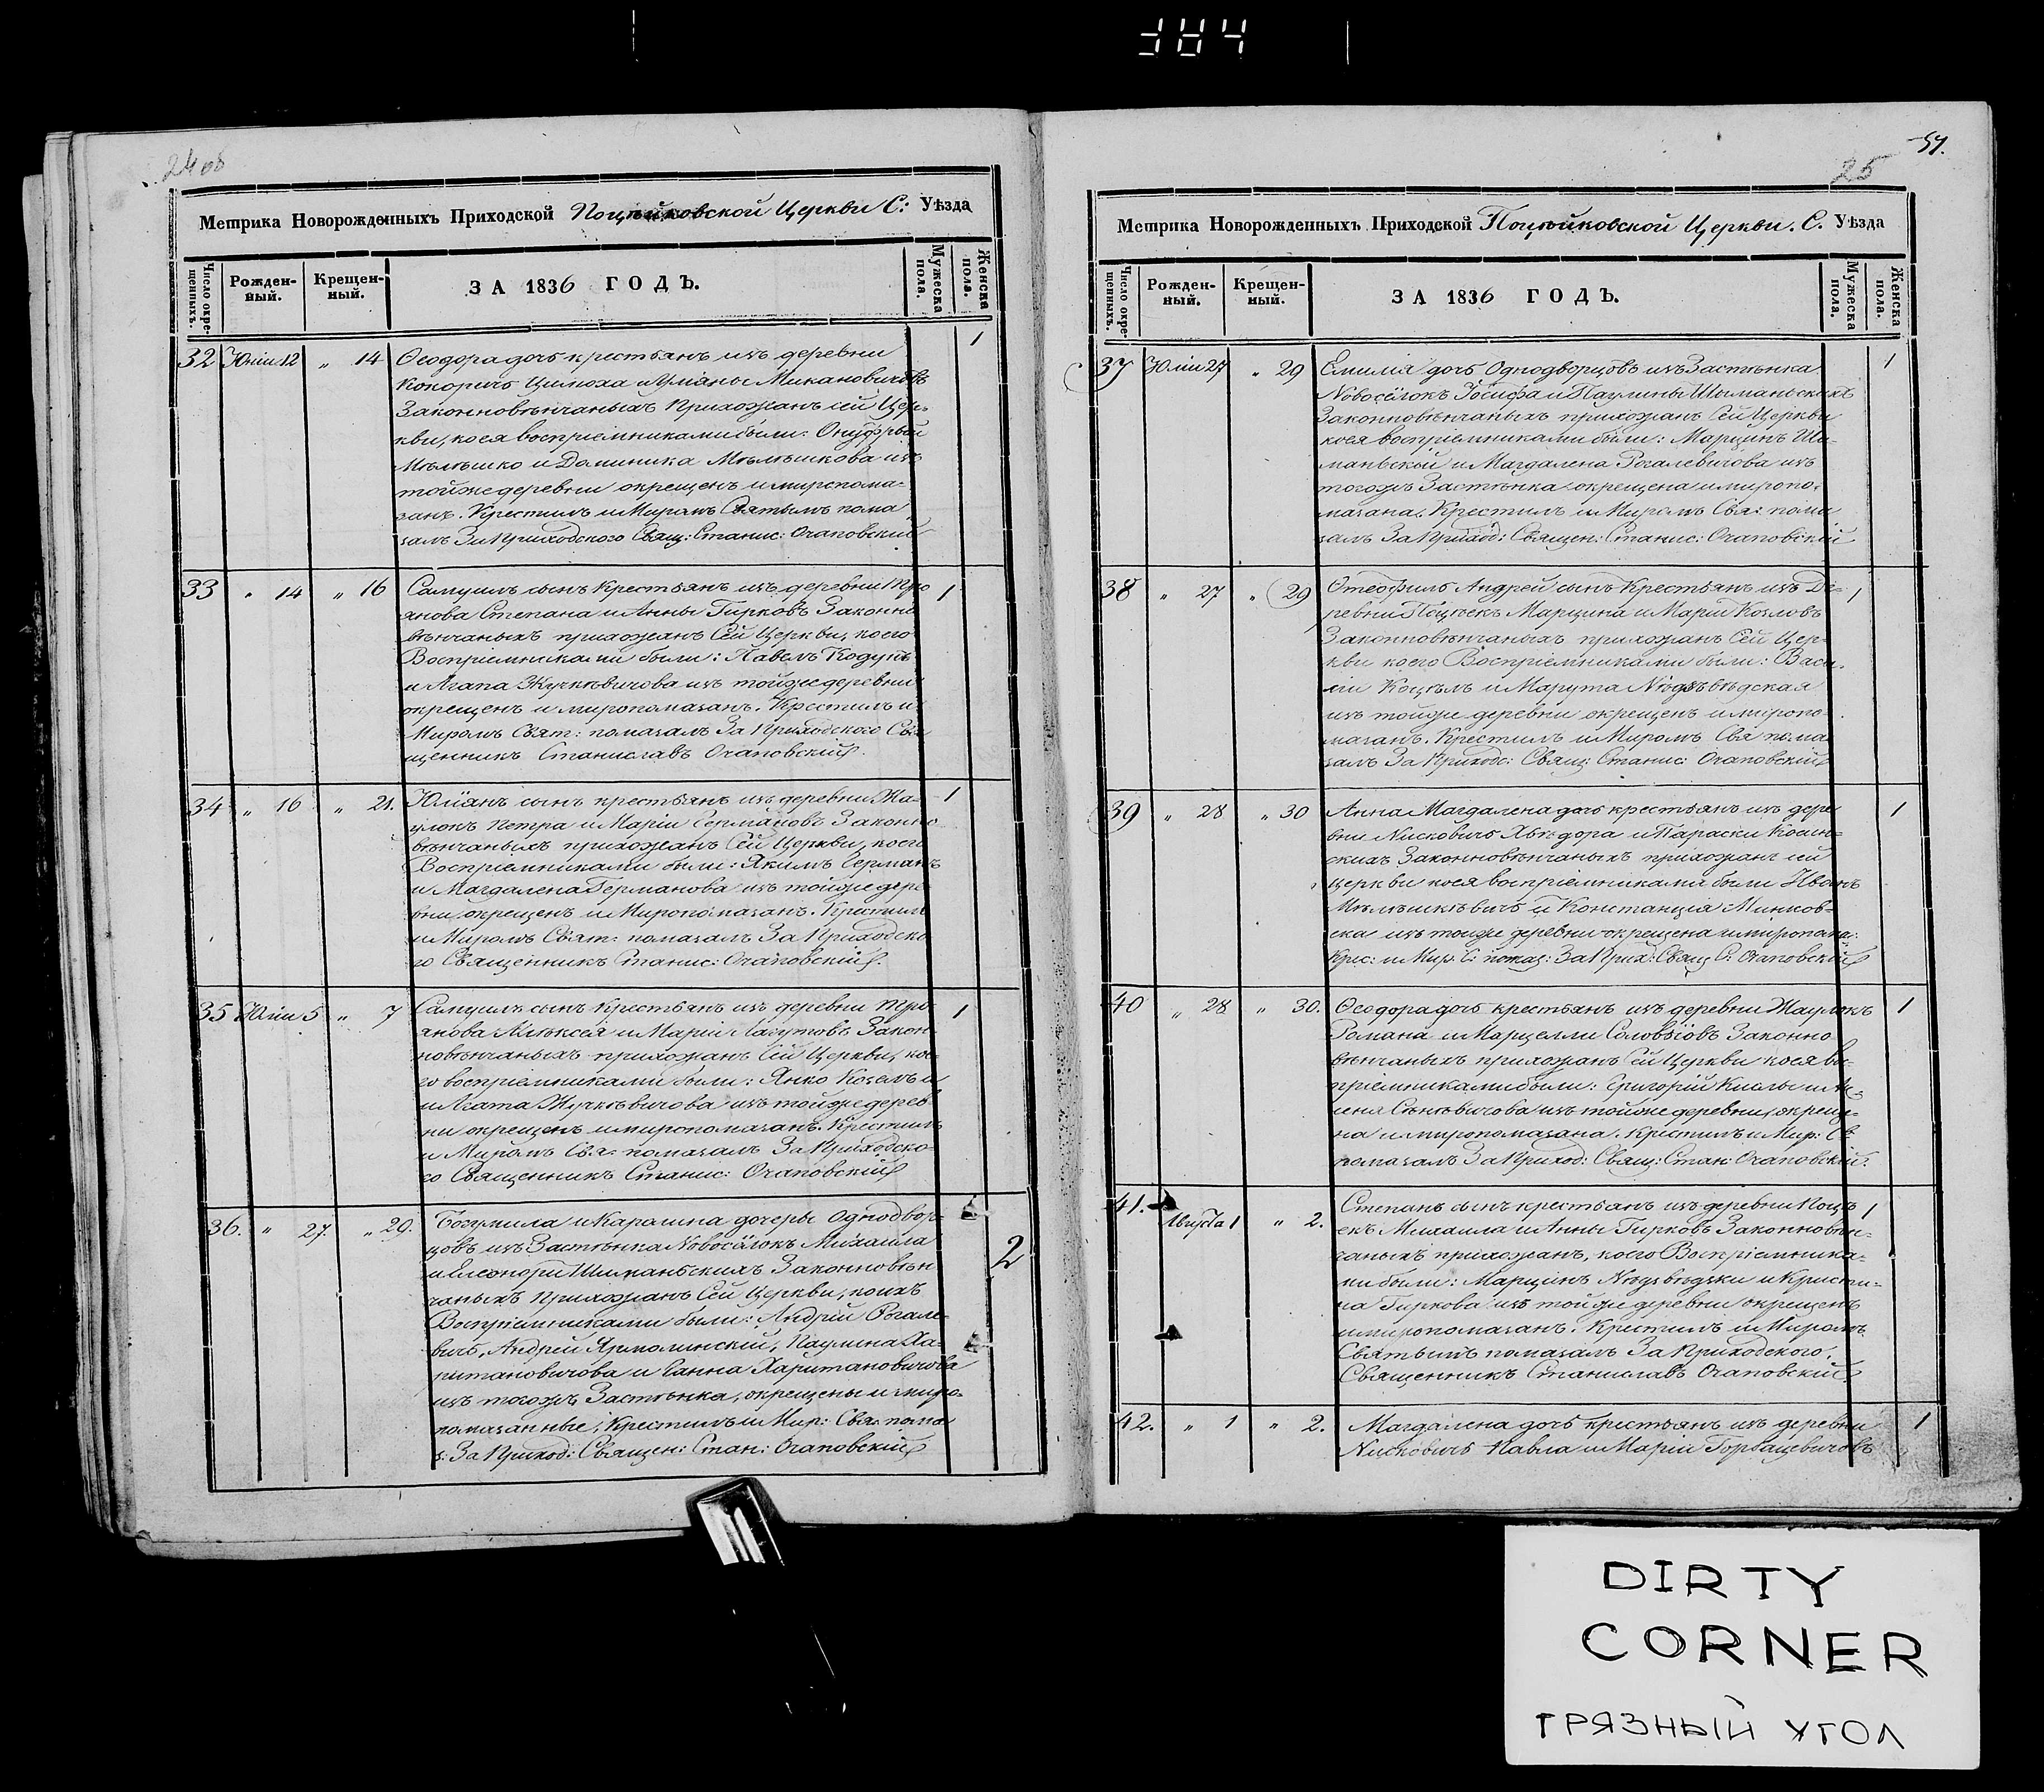 384
24 об
Метрика Новорожденныхъ Приходской Поцѣйковской Церкви С: Уѣзда
Число окре-
щенныхъ.
Рожден-
ный.
Крещен-
ный.
ЗА 1836 ГОДЪ.
Мужеска
пола.
Женска
пола.
32 Юніи 12 „ 14 Ѳеодора дочь крестьянъ изъ деревни 1
Коноричъ Цимоха и Уліяны Микановичовъ
Законновѣнчаныхъ Прихожанъ сей Цер-
кви, коея воспріемниками были: Онуфрый
Мѣлѣшко и Доминика Мѣлѣшкова изъ
тойже деревни окрещенъ и миропома-
занъ. Крестилъ и Миромъ Святымъ пома
залъ За Приходского Свящ: Станис: Очаповскій
33 „ 14 „ 16 Самуилъ сынъ Крестьянъ изъ деревни Тро 1
янова Степана и Анны Гирковъ Законно
вѣнчаныхъ прихожанъ Сей Церкви, коего
Воспріемниками были: Павелъ Кодунъ
и Агапа Жучкѣвичова изъ тойже деревни
окрещенъ и миропомазанъ. Крестилъ и
Миромъ Свят: помазалъ За Приходского Свя
щенникъ Станиславъ Очаповскій
34 „ 16 „ 21. Юліанъ сынъ крестьянъ изъ деревни Жа- 1
улокъ Петра и Маріи Германовъ Законно
вѣнчаныхъ прихожанъ Сей Церкви, коего
Воспріемниками были: Якимъ Германъ
и Магдалена Германова изъ тойже дере
вни, окрещенъ и Миропомазанъ. Крестилъ
и Миромъ Свят: помазалъ За Приходско
го Священникъ Станис: Очаповскій.
35 Юліи 5 „ 7 Самуилъ сынъ Крестьянъ изъ деревни Тро 1
янова Алѣксея и Маріи Закон-
новѣнчаныхъ прихожанъ Сей Церкви, кое-
го воспріемниками были: Янко Козелъ и
и Агата Жучкѣвичова изъ тойже дерев
ни окрещенъ и миропомазанъ. Крестилъ
и Миромъ Свя: помазалъ За Приходско-
го Священникъ Станис: Очаповскій
36. „ 27. „ 29. Богумила и Каролина дочеры Однодвор- 2
цовъ изъ Застѣнка Новосёлокъ Михаила
и Елеонори Шиманьскихъ Законновѣн
чаныхъ Прихожанъ Сей Церкви, коихъ
Воспріемниками были: Андрій Рогале-
вичъ, Андрей Ярмолинскій, Паулина Ха-
ритановичова и Ганна Харитановичова
изъ тогожъ Застѣнка, окрещены и миро-
помазанные, Крестилъ и Мир: Свя: пома
з: За Приход: Священ: Стан: Очаповскій
57.
25
Метрика Новорожденныхъ Приходской Поцѣйковской Церкви. С. Уѣзда
Число окре-
щенныхъ.
Рожден-
ный.
Крещен-
ный.
ЗА 1836 ГОДЪ.
Мужеска
пола.
Женска
пола.
37 Юліи 27 „ 29 Емилія дочь Однодворцовъ изъ Застѣнка 1
Новосёлокъ Іосифа и Паулины Шыманьскихъ
Законновѣнчаныхъ прихожанъ Сей Церкви
коея воспріемниками были: Марцинъ Ши-
маньскій и Магдалена Рогалевичова изъ
тогожъ Застѣнка окрещена и миропо-
мазана. Крестилъ и Миромъ Свя: пома
залъ За Приход: Священ: Станис: Очаповскій
38 „ 27 „ 29 Отеофиль Андрей сынъ Крестьянъ изъ Де- 1
ревни Поцѣекъ Марцина и Маріи Козловъ
Законновѣнчаныхъ прихожанъ Сей Цер-
кви коего Воспріемниками были: Васи-
лій Коцѣлъ и Марута Нѣдзьвѣдская
изъ тойже деревни окрещенъ и миропо-
мазанъ. Крестилъ и Миромъ Свя пома
залъ За Приходс: Свящ: Станис: Очаповскій
39 „ 28 „ 30 Анна Магдалена дочь крестьянъ изъ дере 1
вни Нисковичъ Хвѣдора и Параски Косин-
скихъ Законновѣнчаныхъ прихожанъ сей
церкви коея воспріемниками были Иванъ
Мѣлѣшкѣвичъ и Констанція Минков-
ска изъ тойже деревни окрещена и миропома:
Крес: и Мир: С: помаз: За Прих: Свящ С: Очаповскій
40 „ 28 „ 30. Ѳеодора дочь крестьянъ изъ деревни Жаулокъ 1
Романа и Марцелли Соловьіовъ Законно
вѣнчаныхъ прихожанъ Сей Церкви коея во-
пріемниками были: Григорій Кисль и Ак-
сеня Сѣнкѣвичова изъ тойже деревни, окреще-
на и миропомазана. Крестилъ и Мир: Св:
помазалъ За Приход: Свящ: Стан: Очаповскій.
41. Августа 1 „ 2. Степанъ сынъ крестьянъ изъ деревни Поцѣ 1
екъ Михаила и Анны Гирковъ Законновѣн-
чаныхъ прихожанъ, коего Воспріемника-
ми были: Марцинъ Нѣдзвѣдзки и Кристи-
на Гиркова изъ тойже деревни окрещенъ
и миропомазанъ. Крестилъ и Миромъ
Святымъ помазалъ За Приходского.
Священникъ Станиславъ Очаповскій
42. „ 1 „ 2. Магдалена дочь крестьянъ изъ деревни 1
Нисковичъ Павла и Маріи Горбацевичовъ
DIRTY
CORNER
ГРЯЗНЫЙ УГОЛ